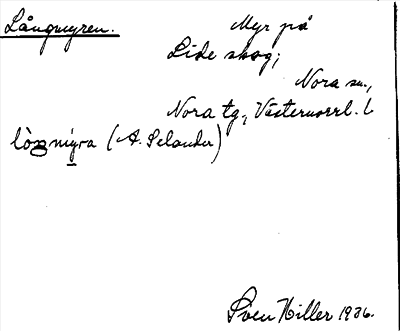 Långmyren. Myr på
Lide skog;
Nora sn.,
Nora tg, Västernorrl. l
(A. Selander)
Sven Hiller 1936.